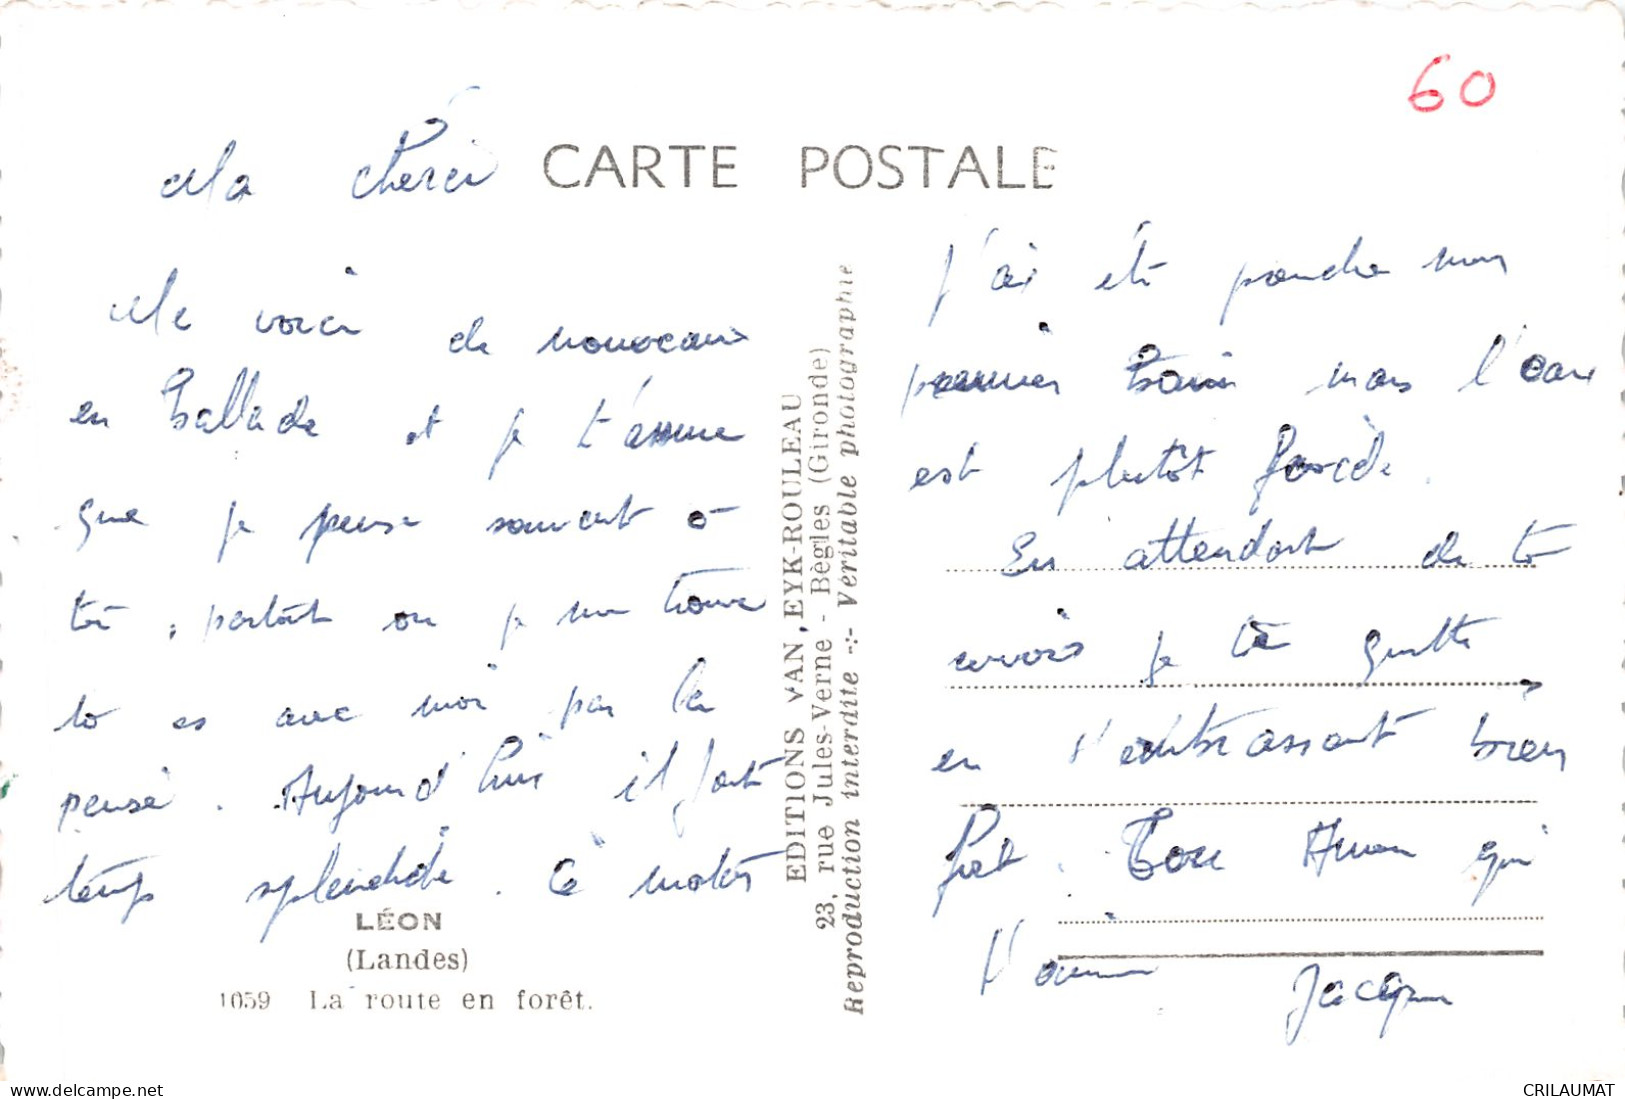 60
CARTE POSTALE
Ma chérie
Me voici de nouveaux
en ballade et je t'assure
que je pense souvent à
toi, partout où je me trouve
tu es avec moi par la
pensé. Aujourd'hui il fait
temps splendide. Ce matin
J'ai été prendre mon
premier bain mais l'eau
est plutôt froide.
En attendant de te
revoir je te quitte
en t'embrassant bien
fort. Ton Amour qui
t'aime Jacques
LÉON
(Landes)
1059 La route en forêt.
EDITIONS VAN EYK-ROULEAU
23, rue Jules-Verne - Bègles (Gironde)
Reproduction interdite -:- Véritable photographie
www.delcampe.net
CRILAUMAT